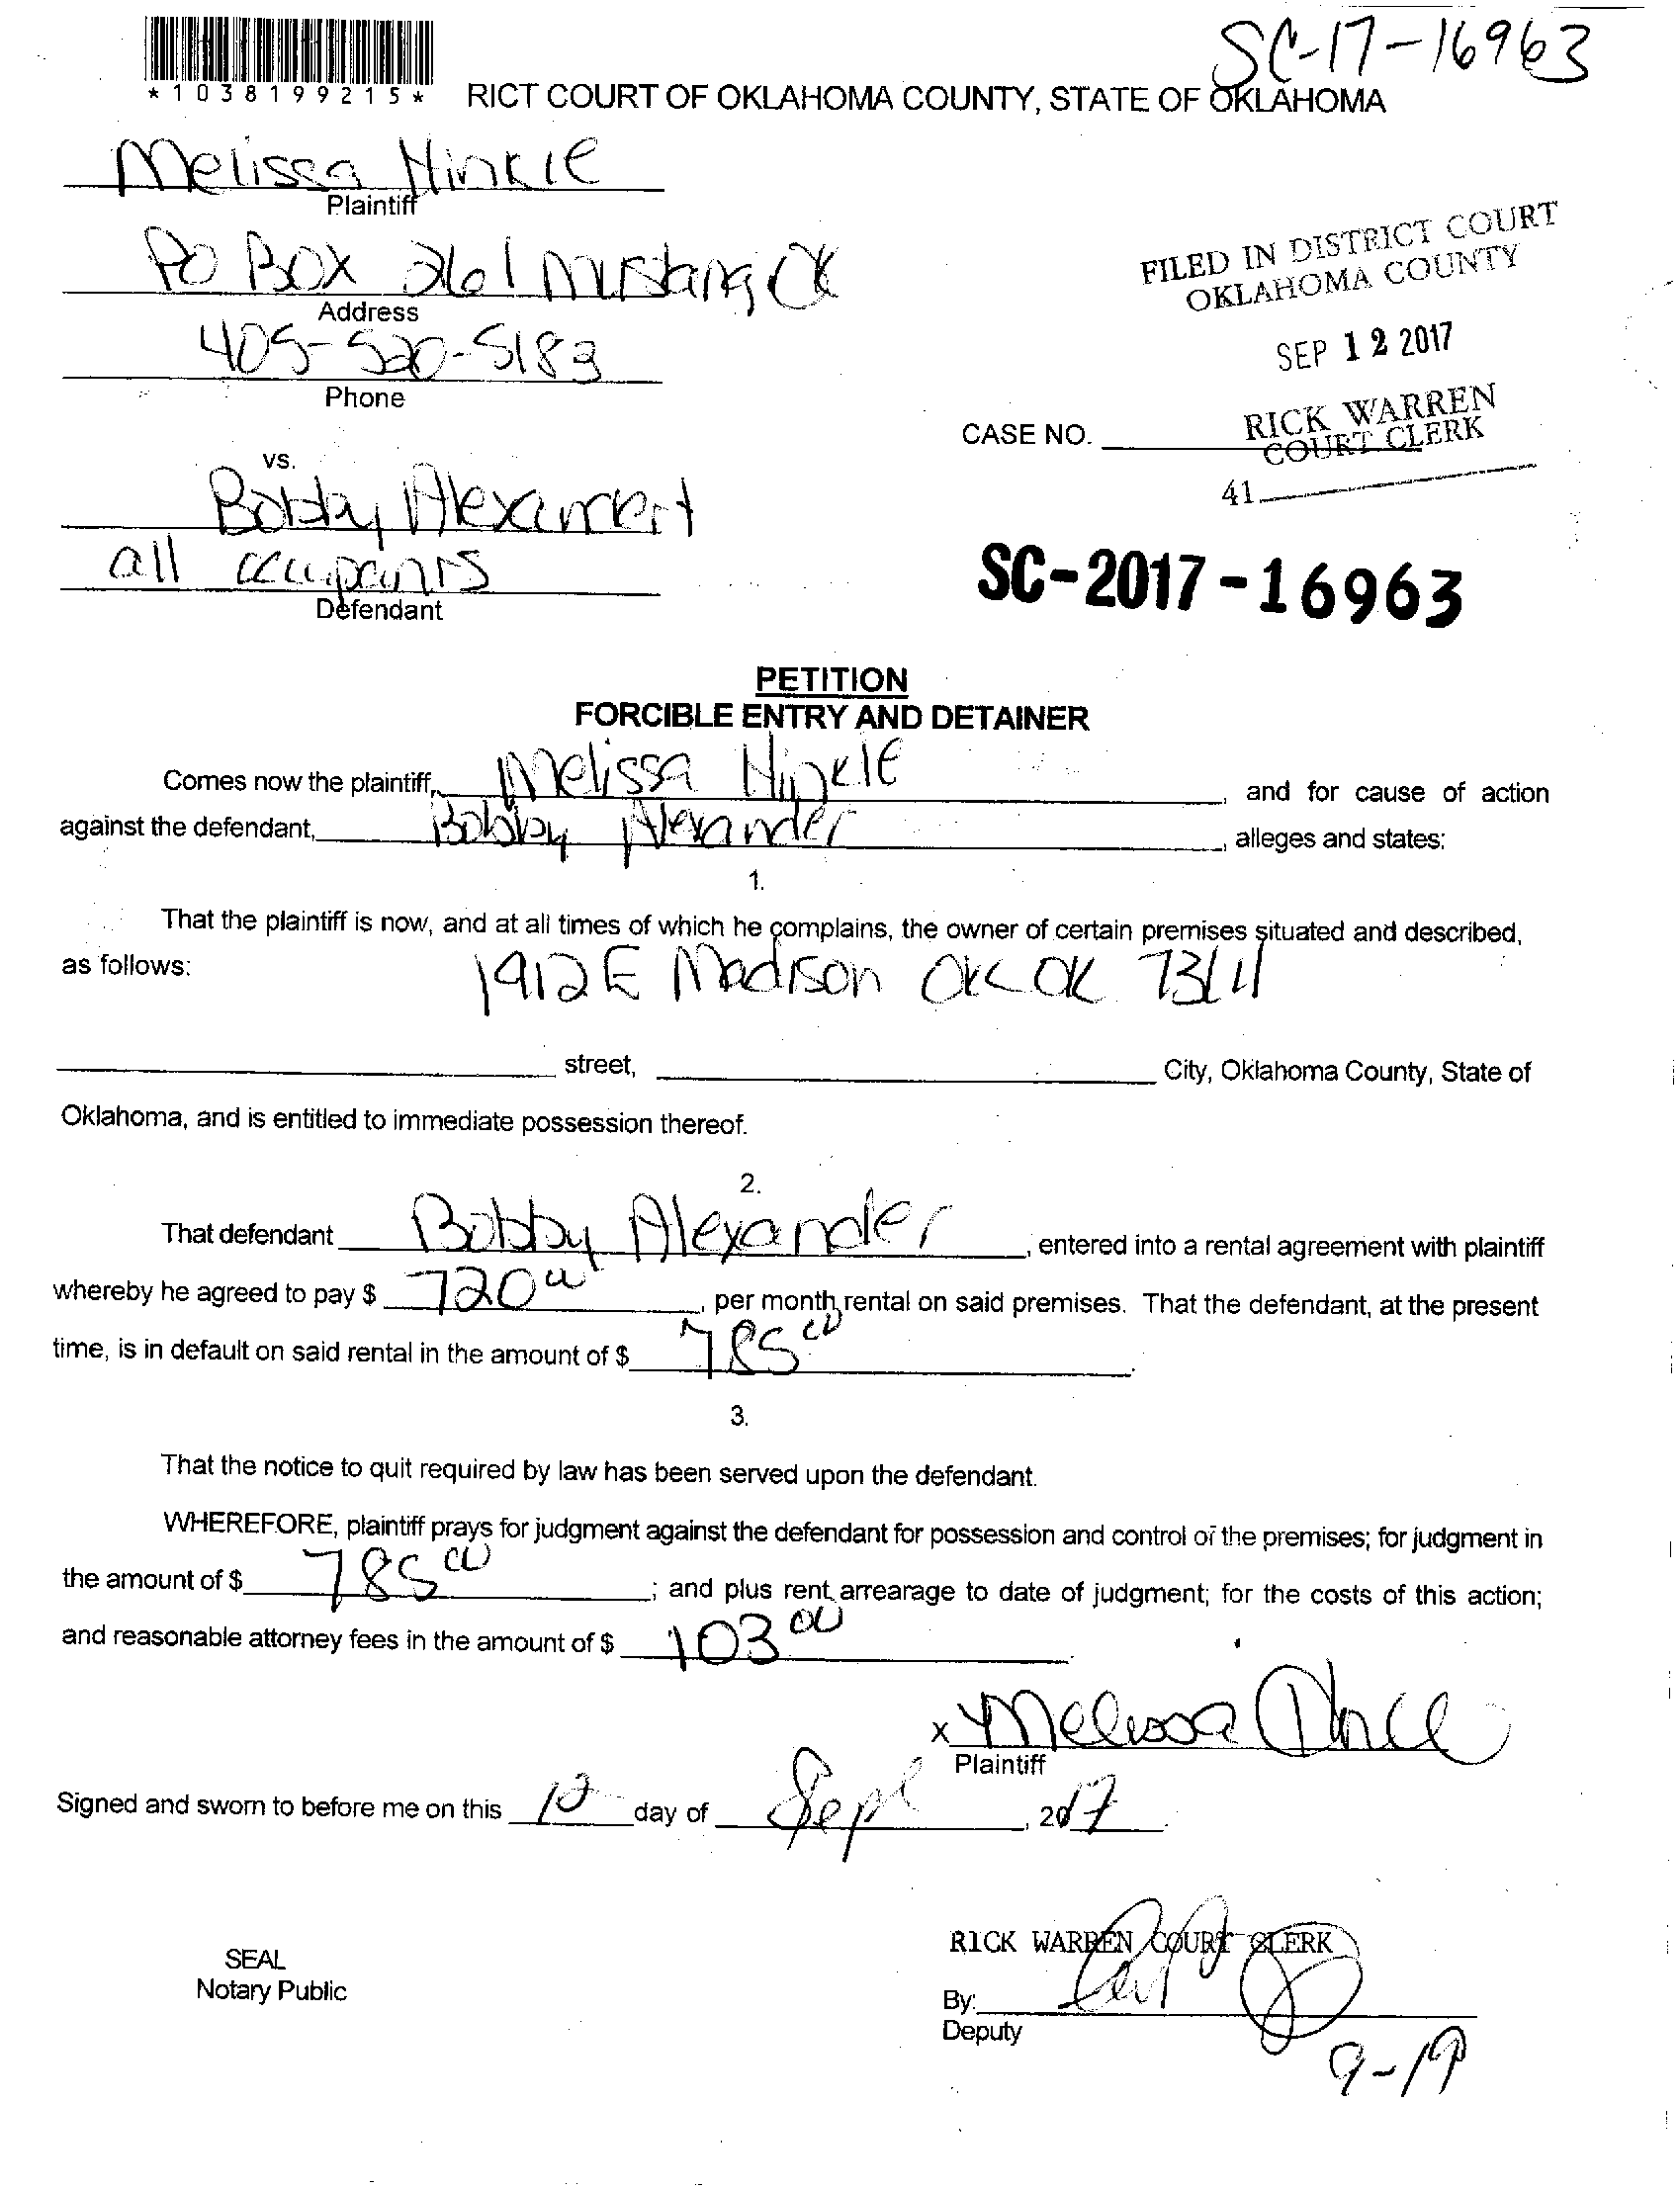 SC-17-16963
*1038199215*
RICT COURT OF OKLAHOMA COUNTY, STATE OF OKLAHOMA
Melissa Hinkle
Plaintiff
PO BOX 261 Mustang OK
Address
405-520-5183
Phone
FILED IN DISTRICT COURT
OKLAHOMA COUNTY
SEP 12 2017
RICK WARREN
COURT CLERK
41
CASE NO.
vs.
Bobby
all occupants
Defendant
SC-2017-16963
PETITION
FORCIBLE ENTRY AND DETAINER
Comes now the plaintiff, Melissa Hinkle, and for cause of action
against the defendant, Bobby Alexander, alleges and states:
1.
That the plaintiff is now, and at all times of which he complains, the owner of certain premises situated and described,
as follows: 1912 E Madison OKC OK 73111
street, City, Oklahoma County, State of
Oklahoma, and is entitled to immediate possession thereof.
2.
That defendant Bobby Alexander, entered into a rental agreement with plaintiff
whereby he agreed to pay $ 720 00, per month rental on said premises. That the defendant, at the present
time, is in default on said rental in the amount of $ 785 00.
3.
That the notice to quit required by law has been served upon the defendant.
WHEREFORE, plaintiff prays for judgment against the defendant for possession and control of the premises; for judgment in
the amount of $ 785 00; and plus rent arrearage to date of judgment; for the costs of this action;
and reasonable attorney fees in the amount of $ 103 00
x Melissa
Plaintiff
Signed and sworn to before me on this 12 day of Sept, 2017.
SEAL
Notary Public
RICK WARREN COURT CLERK
By:
Deputy
9-19